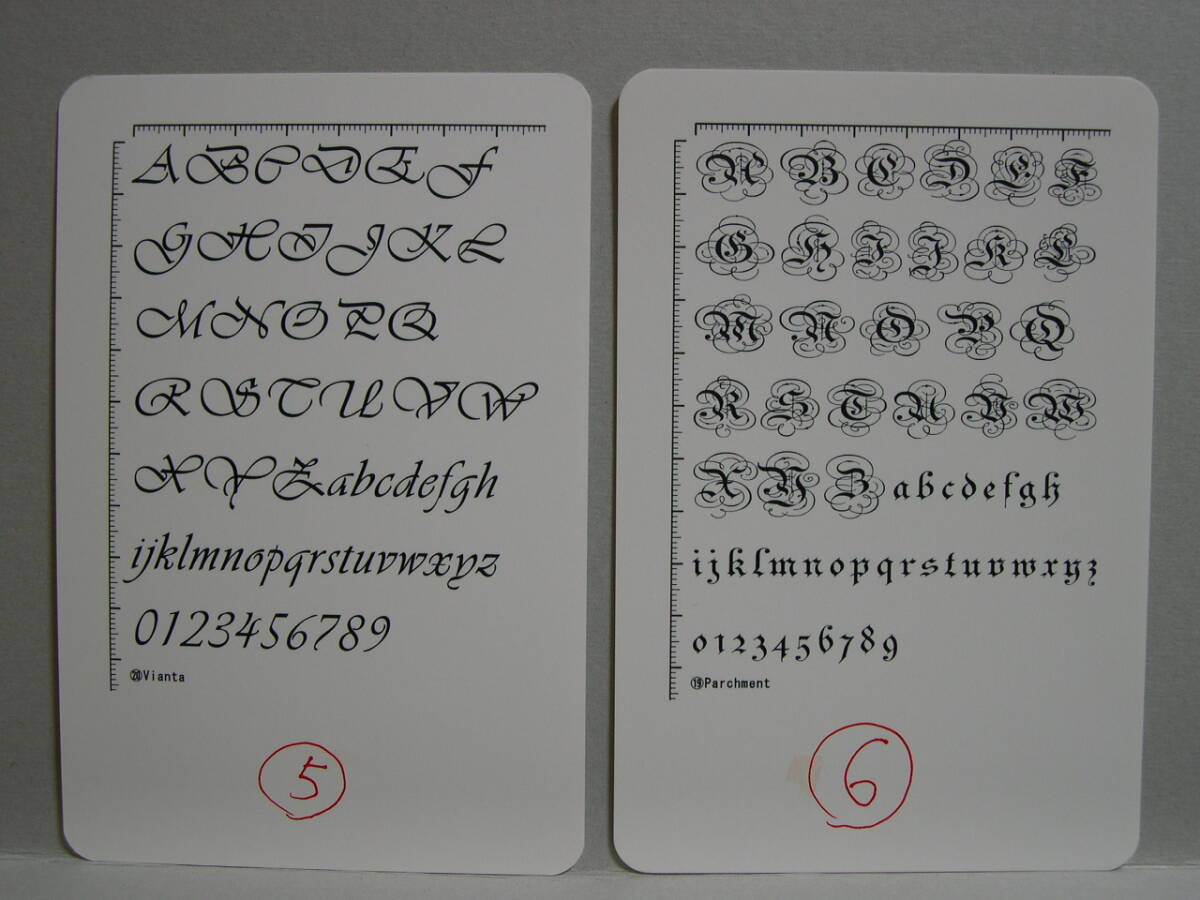 ABCDEF
GHIJKL
MNOPQ
RSTUVW
XYZabcdefgh
ijklmnopqrstuvwxyz
0123456789
⑳Vianta
5
A B C D E F
G H I J K L
M N O P Q
R S T U V W
X Y Z abcdefgh
ijklmnopqrstuvwxyz
0123456789
⑲Parchment
6